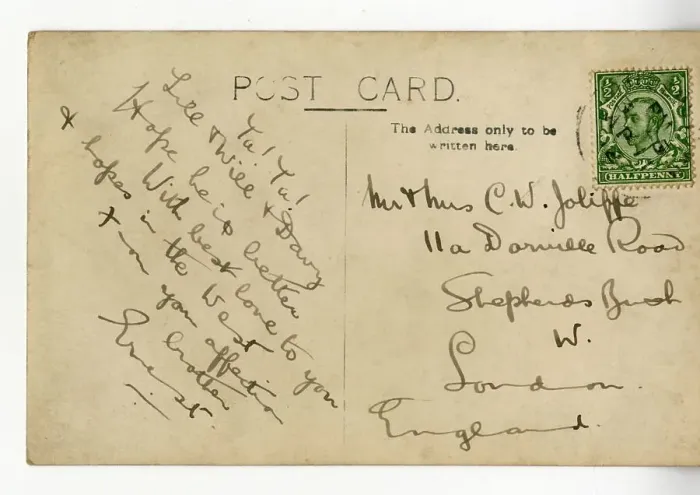 POST CARD.
The Address only to be
written here.
½ ½
HALFPENNY
Ta! Ta!
Lill & Will & Davy
Hope he is better
With best love to you
& hopes in the West
you affection
brother
Ernest.
Mr & Mrs C. W. Joliffe
11a Road
Shepherds Bush
W.
London.
England.